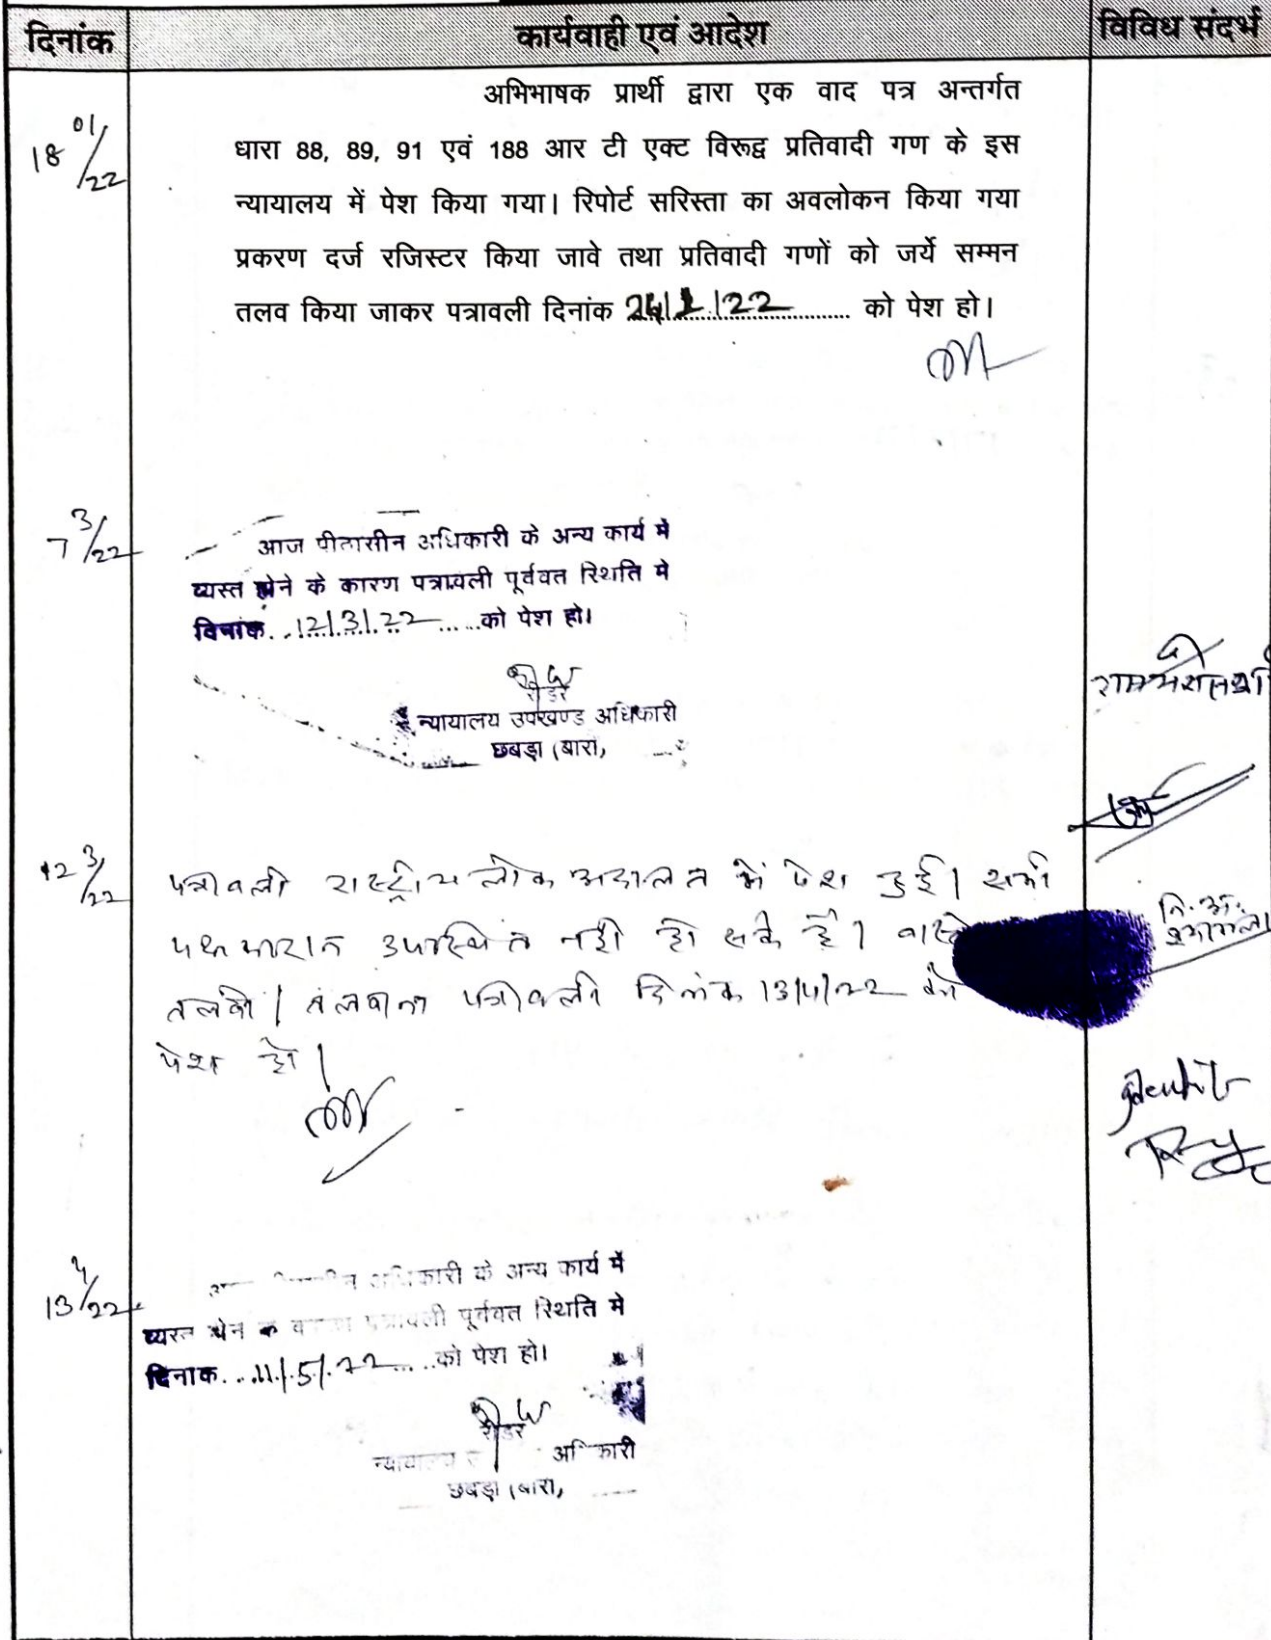 दिनांक
कार्यवाही एवं आदेश
विविध संदर्भ
18 01/22
अभिभाषक प्रार्थी द्वारा एक वाद पत्र अन्तर्गत
धारा 88, 89, 91 एवं 188 आर टी एक्ट विरूद्व प्रतिवादी गण के इस
न्यायालय में पेश किया गया। रिपोर्ट सरिस्ता का अवलोकन किया गया
प्रकरण दर्ज रजिस्टर किया जावे तथा प्रतिवादी गणों को जर्ये सम्मन
तलव किया जाकर पत्रावली दिनांक को पेश हो।
7 3/22
आज पीठासीन अधिकारी के अन्य कार्य में
व्यस्त होने के कारण पत्रावली पूर्ववत स्थिति मे
दिनांक. 12/3/22 को पेश हो।
रीडर
न्यायालय उपखण्ड अधिकारी
छबड़ा (बारां,
12 3/22
पत्रावली राष्ट्रीय लोक अदालत में पेश हुई। सभी
पक्षकारान उपस्थित नही हो सके है। वास्ते
तलबी / तलबाना पत्रावली दिनांक 13/4/22 को
पेश हो।
13 4/22
अधिकारी के अन्य कार्य में
व्यस्त पत्रावली पूर्ववत स्थिति मे
दिनाक. 11/5/22 को पेश हो।
रीडर
अधिकारी
छबड़ा (बारां,